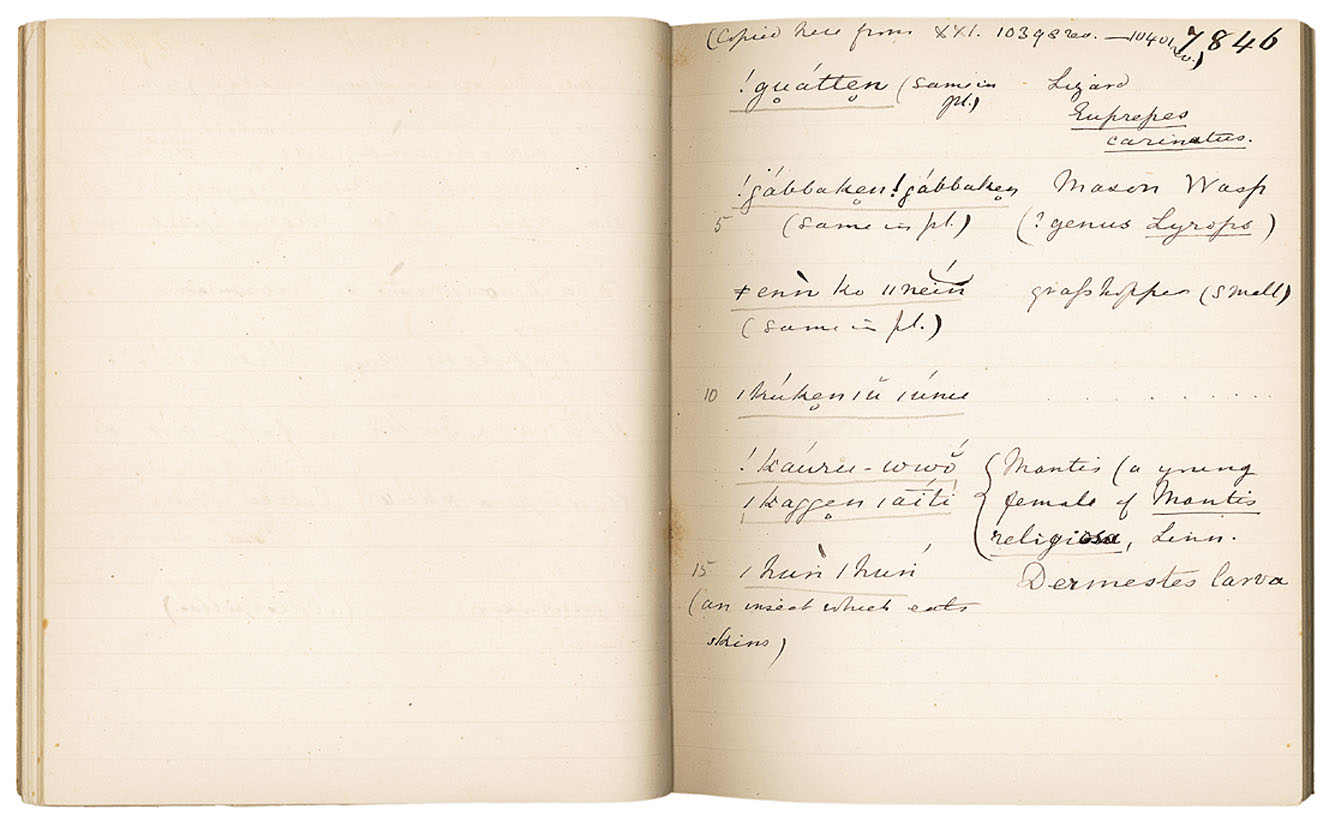 (Copied here from XXI. 10398 rev. — 10401 rev.) 7846
!gu̥átten̥ (same in pl.) Lizard
Euprepes
carinatus.
!gábbaken̥!gábbaken̥ Mason Wasp
5 (same in pl.) (? genus Lyrops)
ǂenǹ ko ǁneiń grasshopper (small)
(same in pl.)
10 ǀkúken̥ ǀŭ ǀúnu . . . . . . . . . .
!káuru-wwŏ́ { Mantis (a young
ǀkaggen̥ ǀaíti female of Mantis
religiosa, Linn.
15 ǀhuǹ ǀhuń Dermestes larva
(an insect which eats
skins)